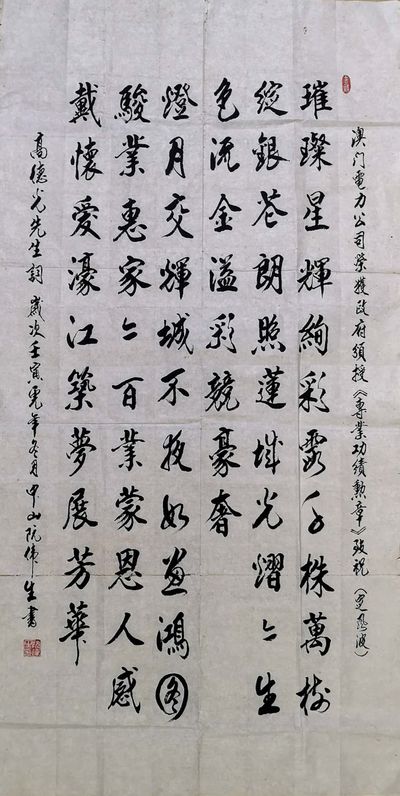 澳门電力公司榮獲政府頒授《專業功績勲章》致祝（定風波）
璀璨星輝絢彩霞千株萬樹
綻銀花朗照蓮城光熠々生
色流金溢彩競豪奢
燈月交輝城不夜如畫鴻圖
駿業惠家々百業蒙恩人感
戴懷愛濠江築夢展芳華
高德光先生詞 歲次壬寅虎年冬月中山阮偉生書